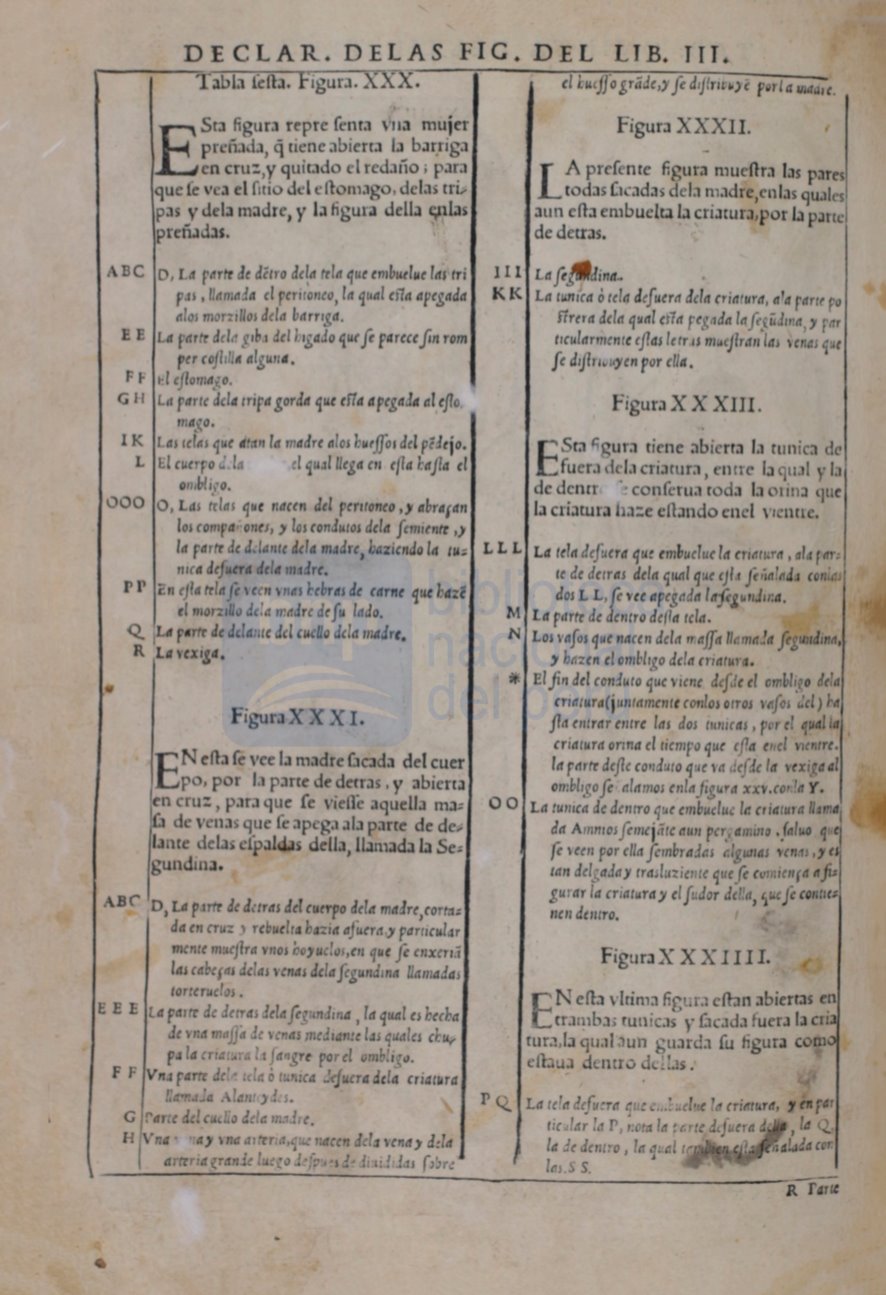 DECLAR. DELAS FIG. DEL LIB. III.
Tabla sesta. Figura. XXX.
ESta figura repre senta vna mujer
preñada, q̃ tiene abierta la barriga
en cruz, y quitado el redaño; para
que se vea el sitio del estomago, delas tri-
pas y dela madre, y la figura della enlas
preñadas.
ABC D, La parte de dẽtro dela tela que embuelue las tri
pas, llamada el peritoneo, la qual esta apegada
alos morzillos dela barriga.
EE La parte dela giba del higado que se parece sin rom
per costilla alguna.
FF El estomago.
GH La parte dela tripa gorda que esta apegada al esto.
mago.
IK Las telas que atan la madre alos huessos del pẽdejo.
L El cuerpo dela el qual llega en esta hasta el
ombligo.
OOO O, Las telas que nacen del peritoneo, y abraçan
los compañones, y los condutos dela semiente, y
la parte de delante dela madre, haziendo la tu-
nica defuera dela madre.
PP En esta tela se veen vnas hebras de carne que hazẽ
el morzillo dela madre de su lado.
Q La parte de delante del cuello dela madre.
R La vexiga.
Figura XXXI.
EN esta se vee la madre sacada del cuer
po, por la parte de detras, y abierta
en cruz, para que se viesse aquella ma-
sa de venas que se apega ala parte de de-
lante delas espaldas della, llamada la Se-
gundina.
ABC D, La parte de detras del cuerpo dela madre, corta-
da en cruz y rebuelta hazia afuera, y particular
mente muestra vnos hoyuelos, en que se enxeriã
las cabeças delas venas dela segundina llamadas
torteruelos.
EEE La parte de detras dela segundina, la qual es hecha
de vna massa de venas mediante las quales chu-
pa la criatura la sangre por el ombligo.
FF Vna parte dela tela ò tunica defuera dela criatura
llamada Alantoydes.
G Parte del cuello dela madre.
H Vna vena y vna arteria, que nacen dela vena y dela
arteria grande luego despues de diuididas sobre
el huesso grãde, y se distribuyẽ por la madre.
Figura XXXII.
LA presente figura muestra las pares
todas sacadas dela madre, enlas quales
aun esta embuelta la criatura, por la parte
de detras.
III La segundina.
KK La tunica ò tela defuera dela criatura, ala parte po
strera dela qual esta pegada la segũdina, y par
ticularmente estas letras muestran las venas que
se distribuyen por ella.
Figura XXXIII.
ESta figura tiene abierta la tunica de
fuera dela criatura, entre la qual y la
de dentro se conserua toda la orina que
la criatura haze estando enel vientre.
LLL La tela defuera que embuelue la criatura, ala par-
te de detras dela qual que esta señalada conlas
dos LL, se vee apegada la segundina.
M La parte de dentro desta tela.
N Los vasos que nacen dela massa llamada segundina,
y hazen el ombligo dela criatura.
* El fin del conduto que viene desde el ombligo dela
criatura (juntamente conlos otros vasos del) ha
sta entrar entre las dos tunicas, por el qual la
criatura orina el tiempo que esta enel vientre.
la parte deste conduto que va desde la vexiga al
ombligo señalamos enla figura xxv. conla Y.
OO La tunica de dentro que embuelue la criatura llama
da Amnios semejãte aun pergamino, saluo que
se veen por ella sembradas algunas venas, y es
tan delgada y trasluziente que se comiença a fi-
gurar la criatura y el sudor della, que se contie-
nen dentro.
Figura XXXIIII.
EN esta vltima figura estan abiertas en
trambas tunicas y sacada fuera la cria
tura, la qual aun guarda su figura como
estaua dentro dellas.
PQ La tela defuera que embuelue la criatura, y en par
ticular la P, nota la parte defuera della, la Q,
la de dentro, la qual tambien esta señalada con
las. S S.
R Parte